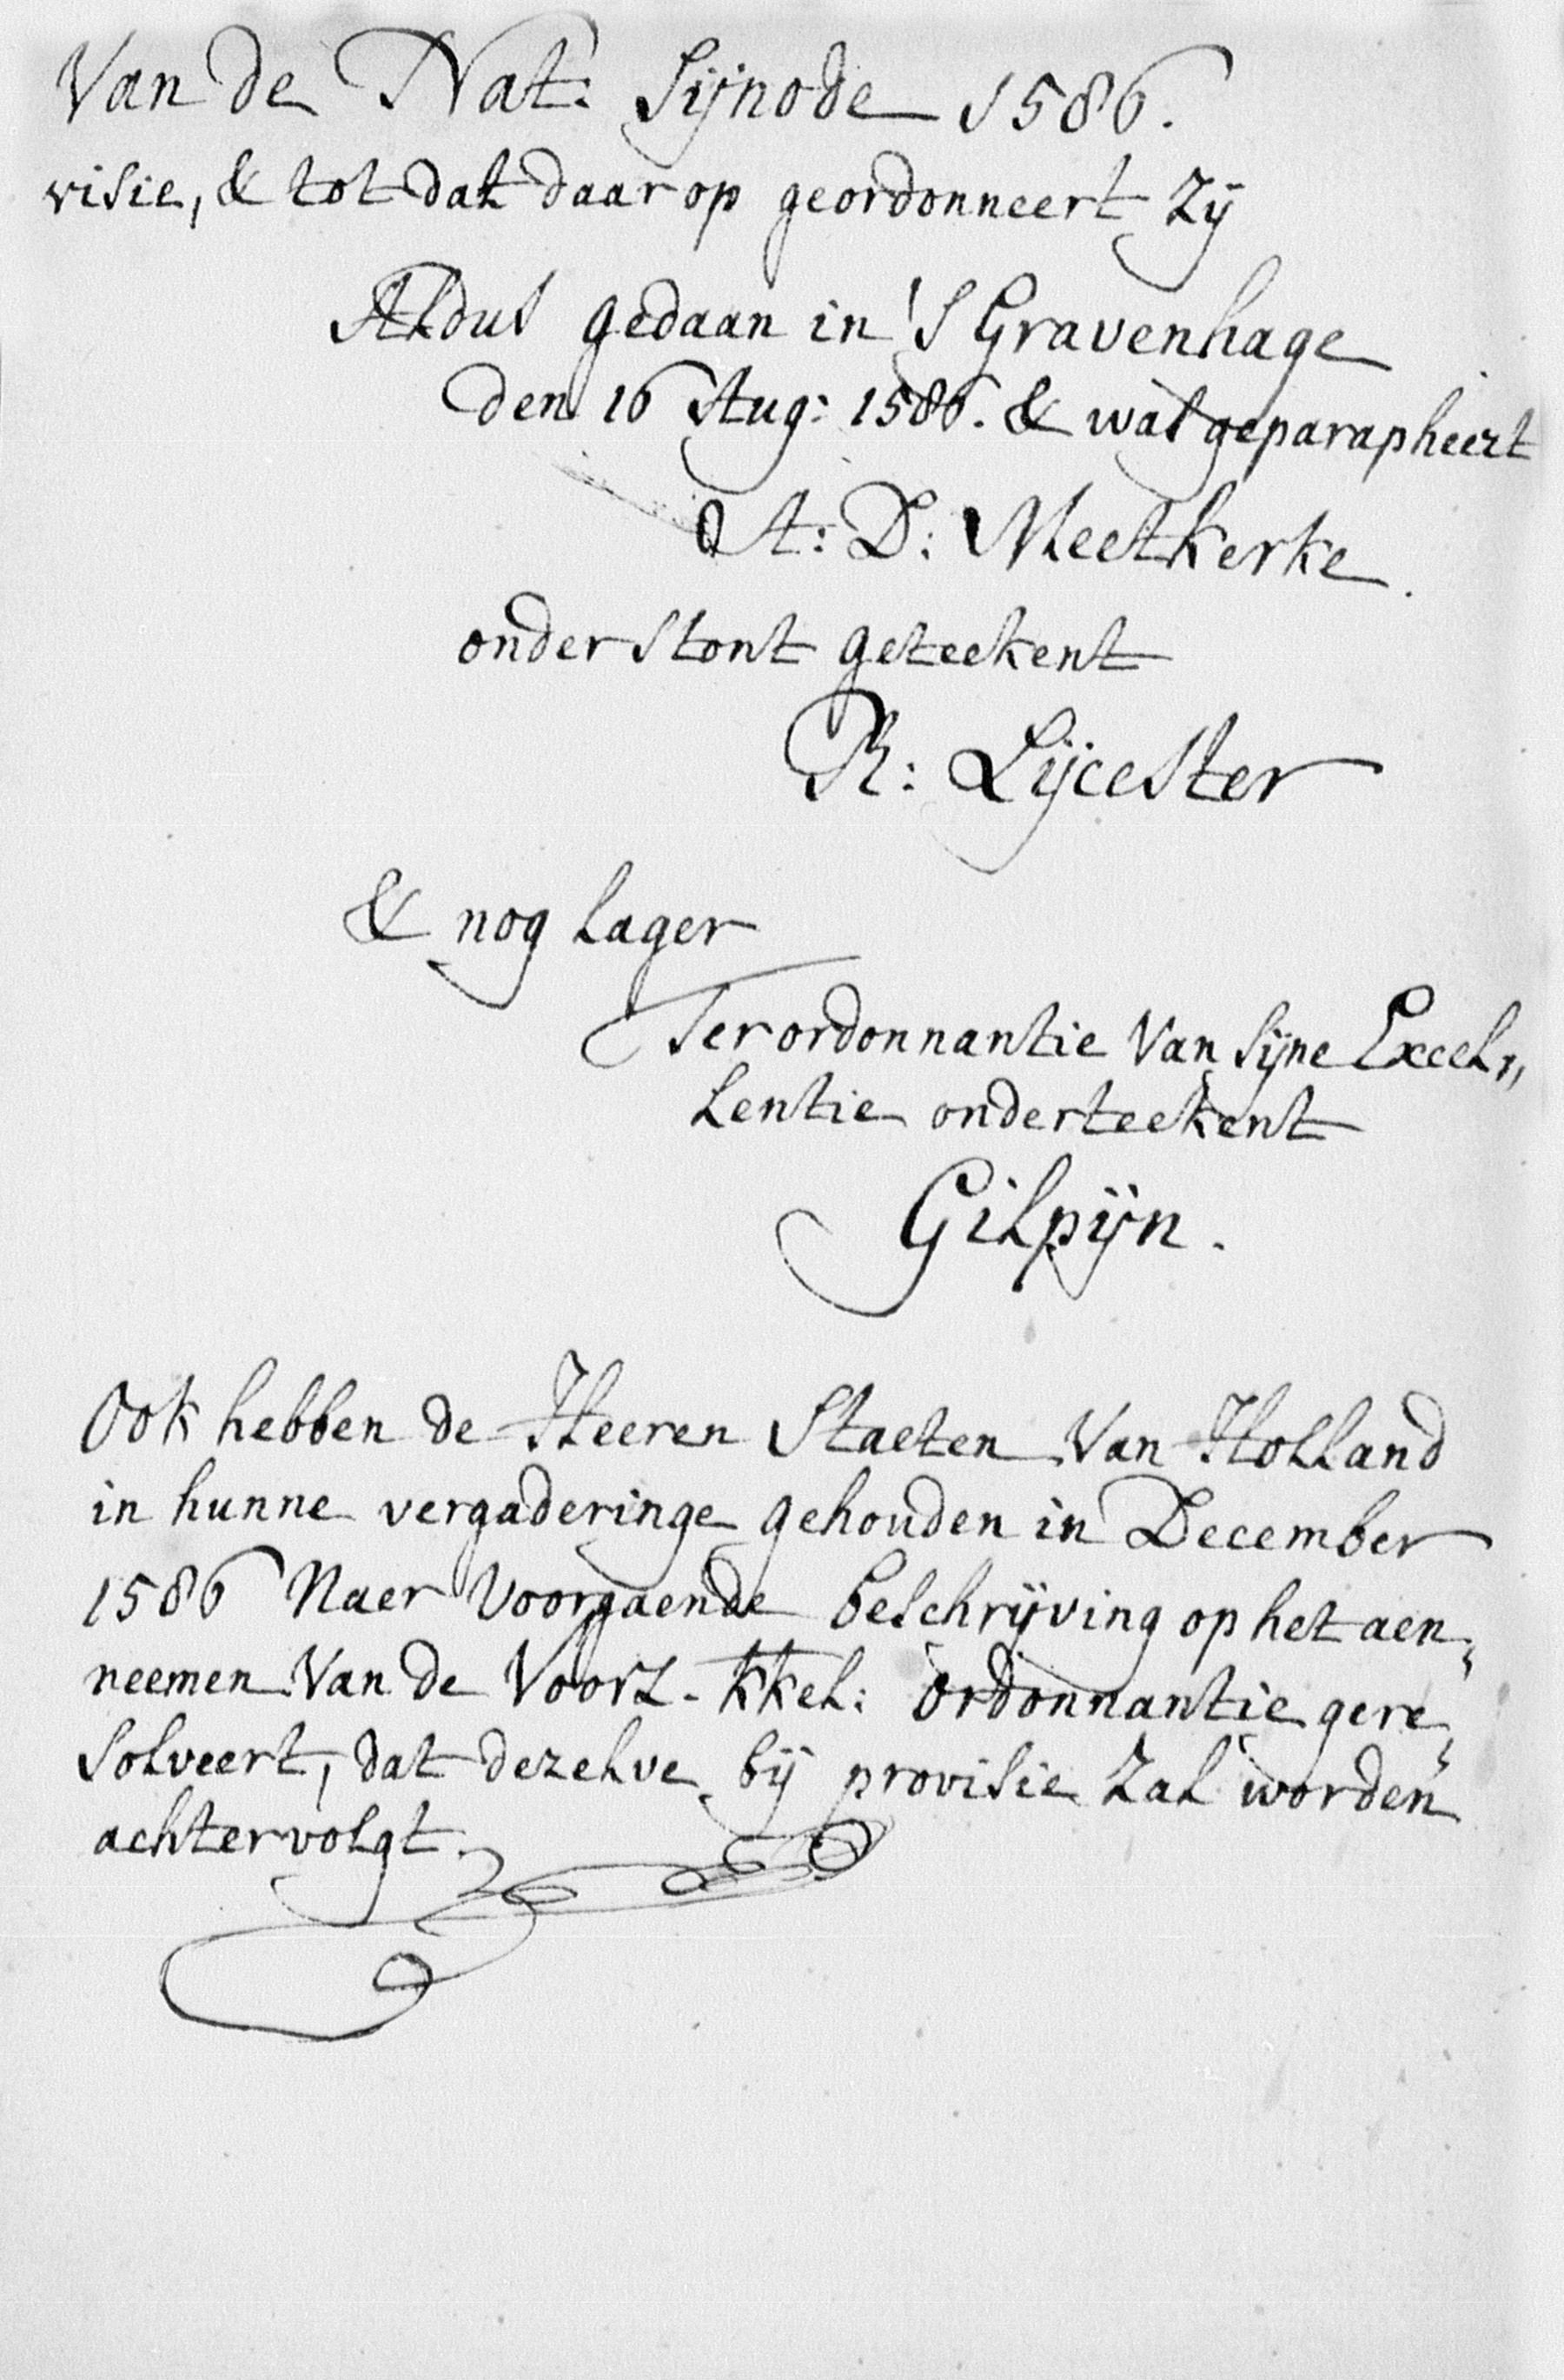 Van de Nat: Sijnode 1586.
visie, & tot dat daar op geordonneert zij
Aldus gedaan in 's Gravenhage
den 16 Aug: 1586. & was geparapheert
A: D: Meetkerke.
onder stont geteekent
R: Lijcester
& nog lager
Ter ordonnantie Van sijne Excel„
lentie onderteekent
Gilpijn.
Ook hebben de Heeren Staeten Van Holland
in hunne vergaderinge gehouden in December
1586 Naer Voorgaende beschrijving op het aen„
neemen Van de Voorz. KKel: ordonnantie gere„
solveert, dat dezelve bij provisie zal worden
achtervolgt.